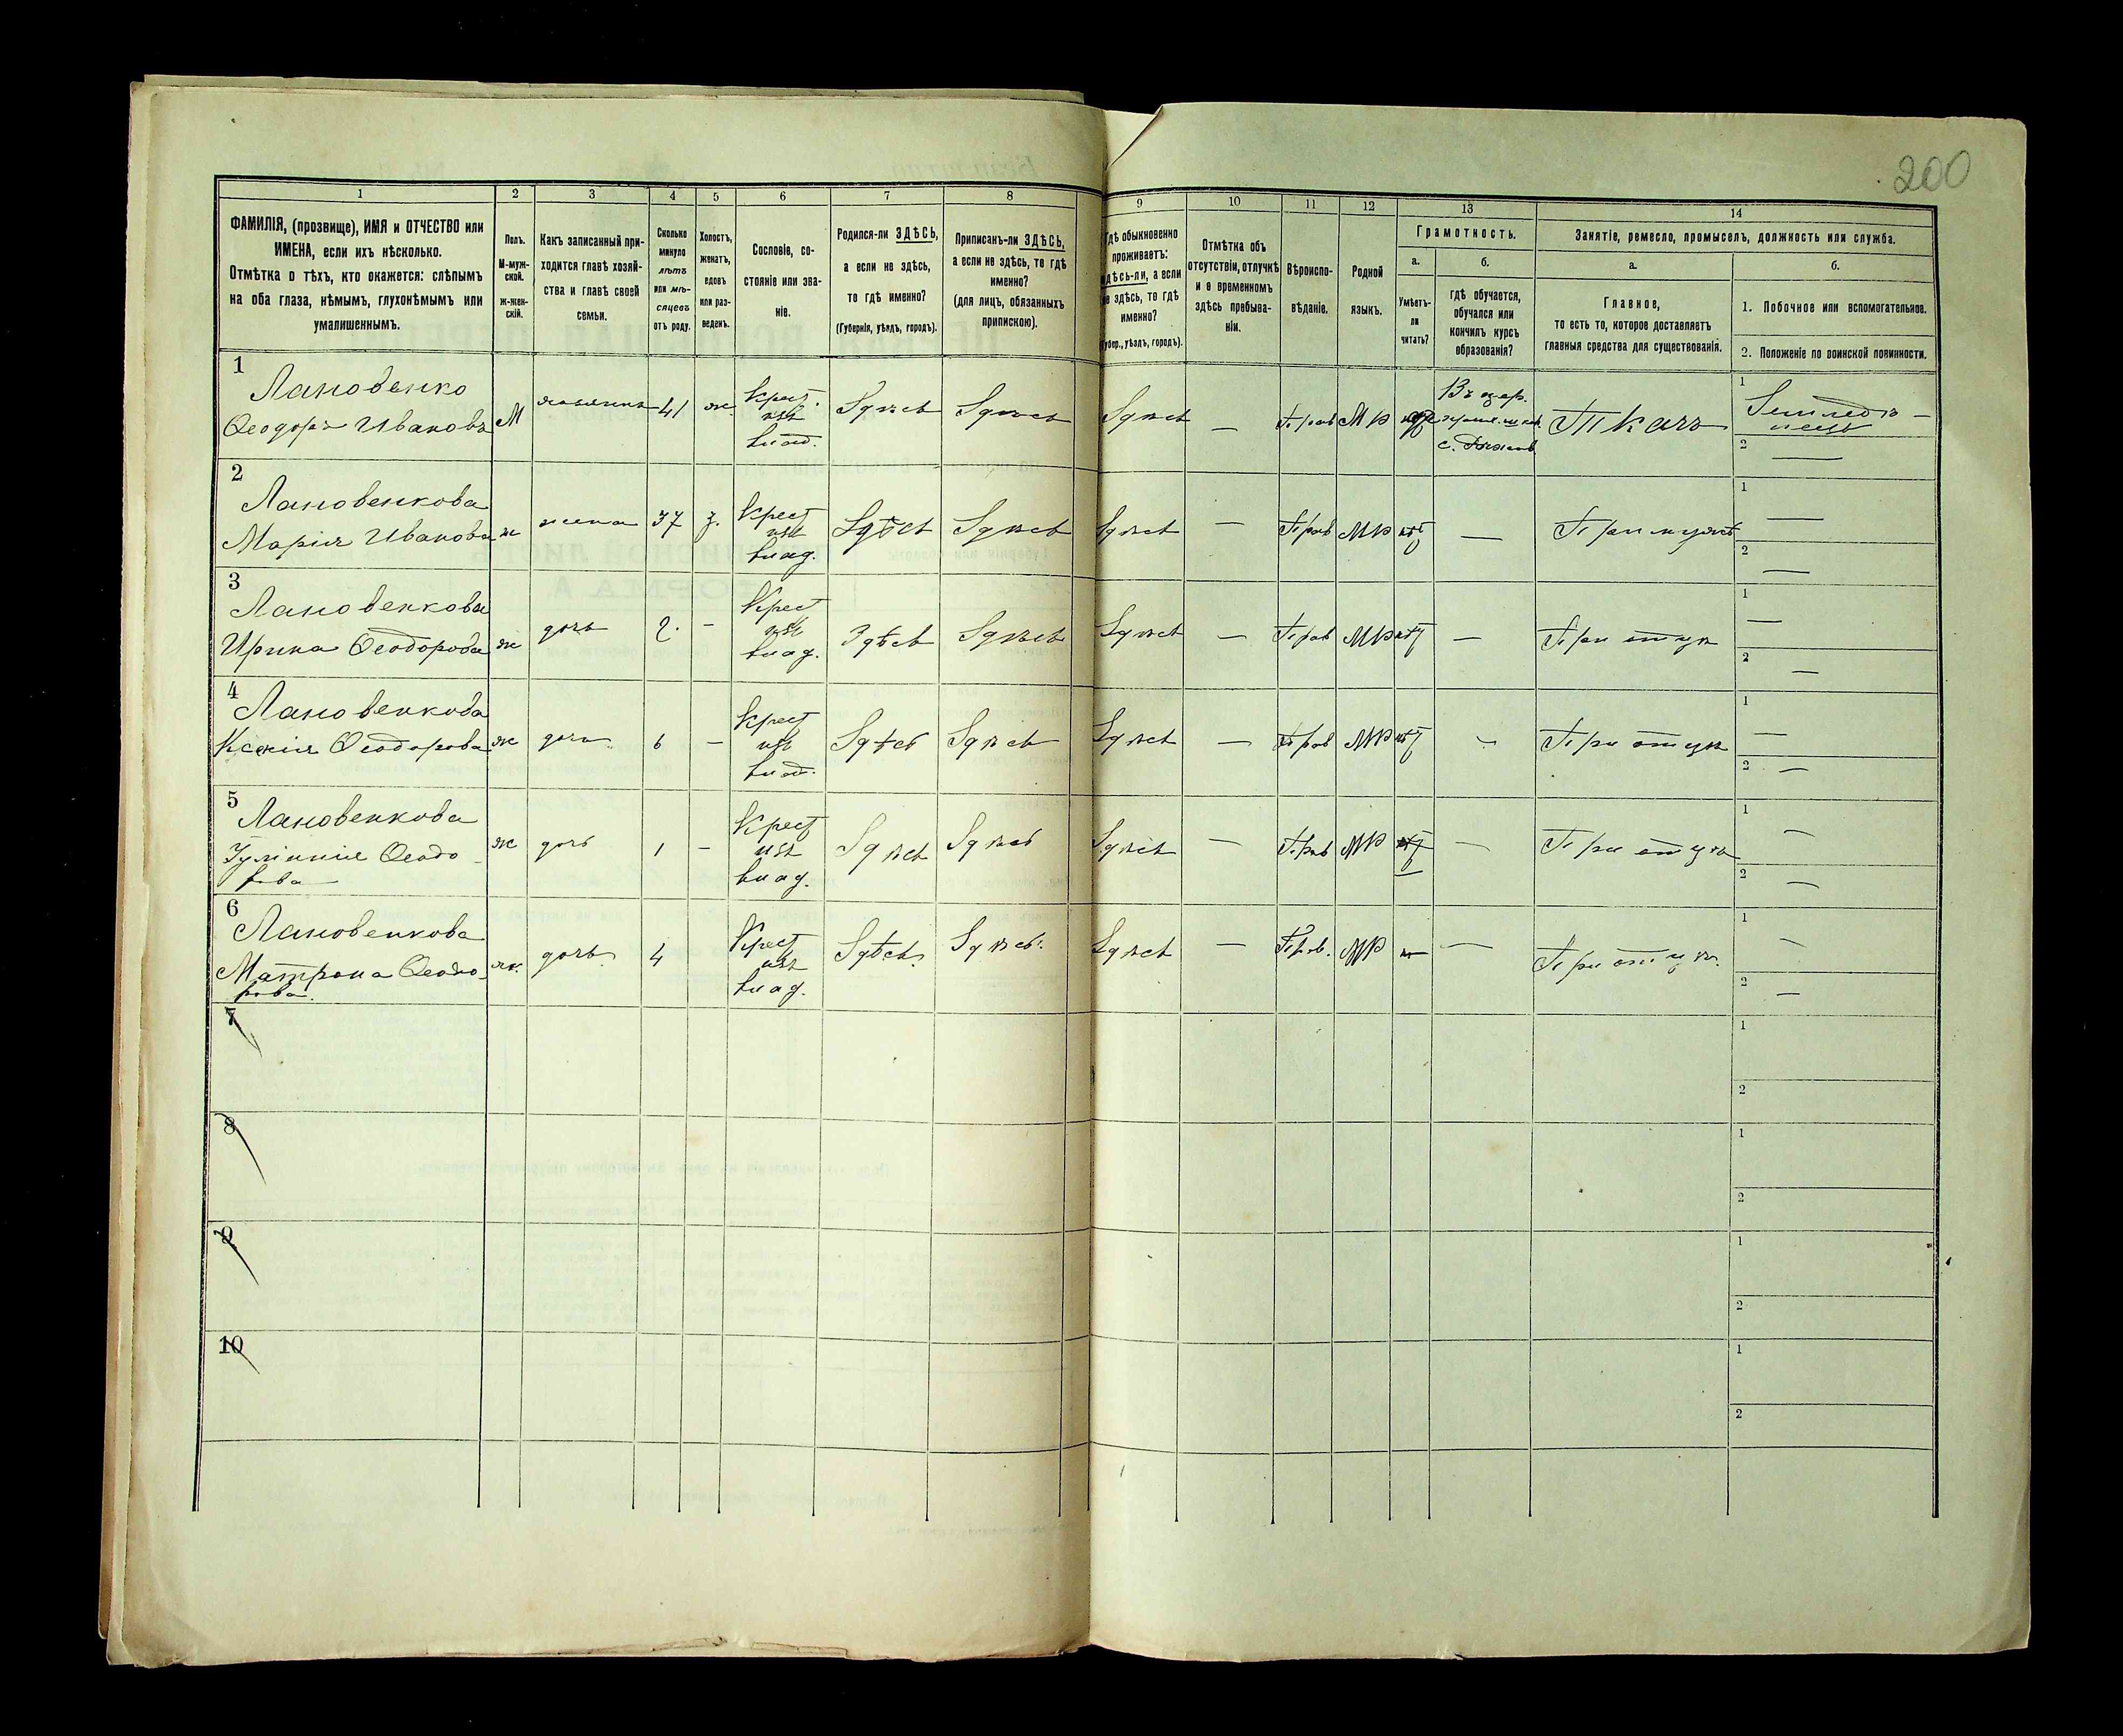 200
1
2
3
4
5
6
7
8
9
10
11
12
13
14
ФАМИЛІЯ, (прозвище), ИМЯ и ОТЧЕСТВО или
ИМЕНА, если ихъ нѣсколько.
Отмѣтка о тѣхъ, кто окажется: слѣпымъ
на оба глаза, нѣмымъ, глухонѣмымъ или
умалишеннымъ.
Полъ.
М-муж-
ской.
ж-жен-
скій.
Какъ записанный при-
ходится главѣ хозяй-
ства и главѣ своей
семьи.
Сколько
минуло
лѣтъ
или мѣ-
сяцевъ
отъ роду.
Холостъ,
женатъ,
вдовъ
или раз-
веденъ.
Сословіе, со-
стояніе или зва-
ніе.
Родился-ли ЗДѢСЬ,
а если не здѣсь,
то гдѣ именно?
(Губернія, уѣздъ, городъ).
Приписанъ-ли ЗДѢСЬ,
а если не здѣсь, то гдѣ
именно?
(для лицъ, обязанныхъ
припискою).
Гдѣ обыкновенно
проживаетъ:
здѣсь-ли, а если
не здѣсь, то гдѣ
именно?
(Губер., уѣздъ, городъ).
Отмѣтка объ
отсутствіи, отлучкѣ
и о временномъ
здѣсь пребыва-
ніи.
Вѣроиспо-
вѣданіе.
Родной
языкъ.
Грамотность.
а.
Умѣетъ-
ли
читать?
б.
гдѣ обучается,
обучался или
кончилъ курсъ
образованія?
Занятіе, ремесло, промыселъ, должность или служба.
а.
Главное,
то есть то, которое доставляетъ
главныя средства для существованія.
б.
1. Побочное или вспомогательное.
2. Положеніе по воинской повинности.
1
Лановенко
Ѳеодоръ Ивановъ
М
хозяинъ
41
ж.
Крест.
изъ
влад.
Здѣсь
Здѣсь
Здѣсь
—
Прав
МР
Въ цер.
с.
Ткачъ
1
Земледѣ-
лецъ
2
—
2
Лановенкова
Марія Иванова
ж
жена
37
з.
Крест
изъ
влад.
Здѣсь
Здѣсь
Здѣсь
—
Прав
МР
нѣт
—
При мужѣ
1
—
2
—
3
Лановенкова
Ирина Ѳеодорова
ж
дочь
-
Крест
изъ
влад.
Здѣсь
Здѣсь
Здѣсь
—
Прав
МР
нѣт
—
При отцѣ
1
—
2
—
4
Лановенкова
Ксенія Ѳеодорова
ж
дочь
6
—
Крест
изъ
влад.
Здѣсь
Здѣсь
Здѣсь
—
Прав
МР
нѣт
—
При отцѣ
1
—
2
—
5
Лановенкова
Іуліанія Ѳеодо
рова
ж
дочь
1
—
Крест
изъ
влад.
Здѣсь
Здѣсь
Здѣсь
—
Прав
МР
нѣт
—
При отцѣ
1
—
2
—
6
Лановенкова
Матрона Ѳеодо-
рова.
ж.
дочь
4
Крест
изъ
влад.
Здѣсь.
Здѣсь.
Здѣсь
—
Прав.
МР
—
При отцѣ.
1
—
2
—
7
1
2
8
1
2
9
1
2
10
1
2